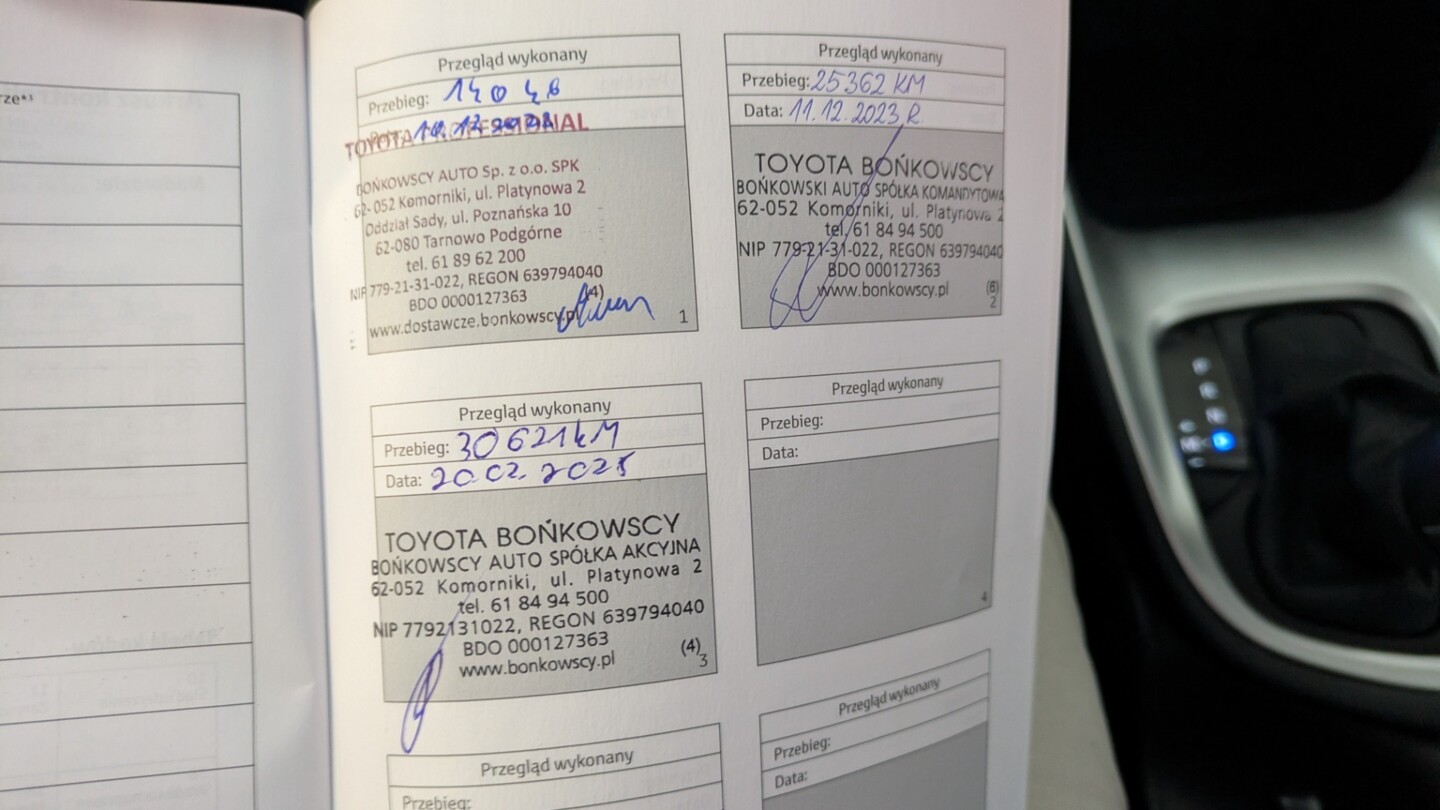 rze*³
Przegląd wykonany
Przebieg:
TOYOTA PROFESSIONAL
BOŃKOWSCY AUTO Sp. z o.o. SPK
62-052 Komorniki, ul. Platynowa 2
Oddział Sady, ul. Poznańska 10
62-080 Tarnowo Podgórne
tel. 61 89 62 200
NIP 779-21-31-022, REGON 639794040
BDO 0000127363
(4)
www.dostawcze.bonkowscy.pl
1
Przegląd wykonany
Przebieg: 25362 KM
Data: 11.12.2023 R.
TOYOTA BOŃKOWSCY
BOŃKOWSKI AUTO SPÓŁKA KOMANDYTOWA
62-052 Komorniki, ul. Platynowa 2
tel. 61 84 94 500
NIP 779-21-31-022, REGON 639794040
BDO 000127363
www.bonkowscy.pl (6)
2
Przegląd wykonany
Przebieg: 30621 kM
Data: 20.02.2025
TOYOTA BOŃKOWSCY
BOŃKOWSCY AUTO SPÓŁKA AKCYJNA
62-052 Komorniki, ul. Platynowa 2
tel. 61 84 94 500
NIP 7792131022, REGON 639794040
BDO 000127363
www.bonkowscy.pl (4)
3
Przegląd wykonany
Przebieg:
Data:
4
Przegląd wykonany
Przebieg:
Przegląd wykonany
Przebieg:
Data: